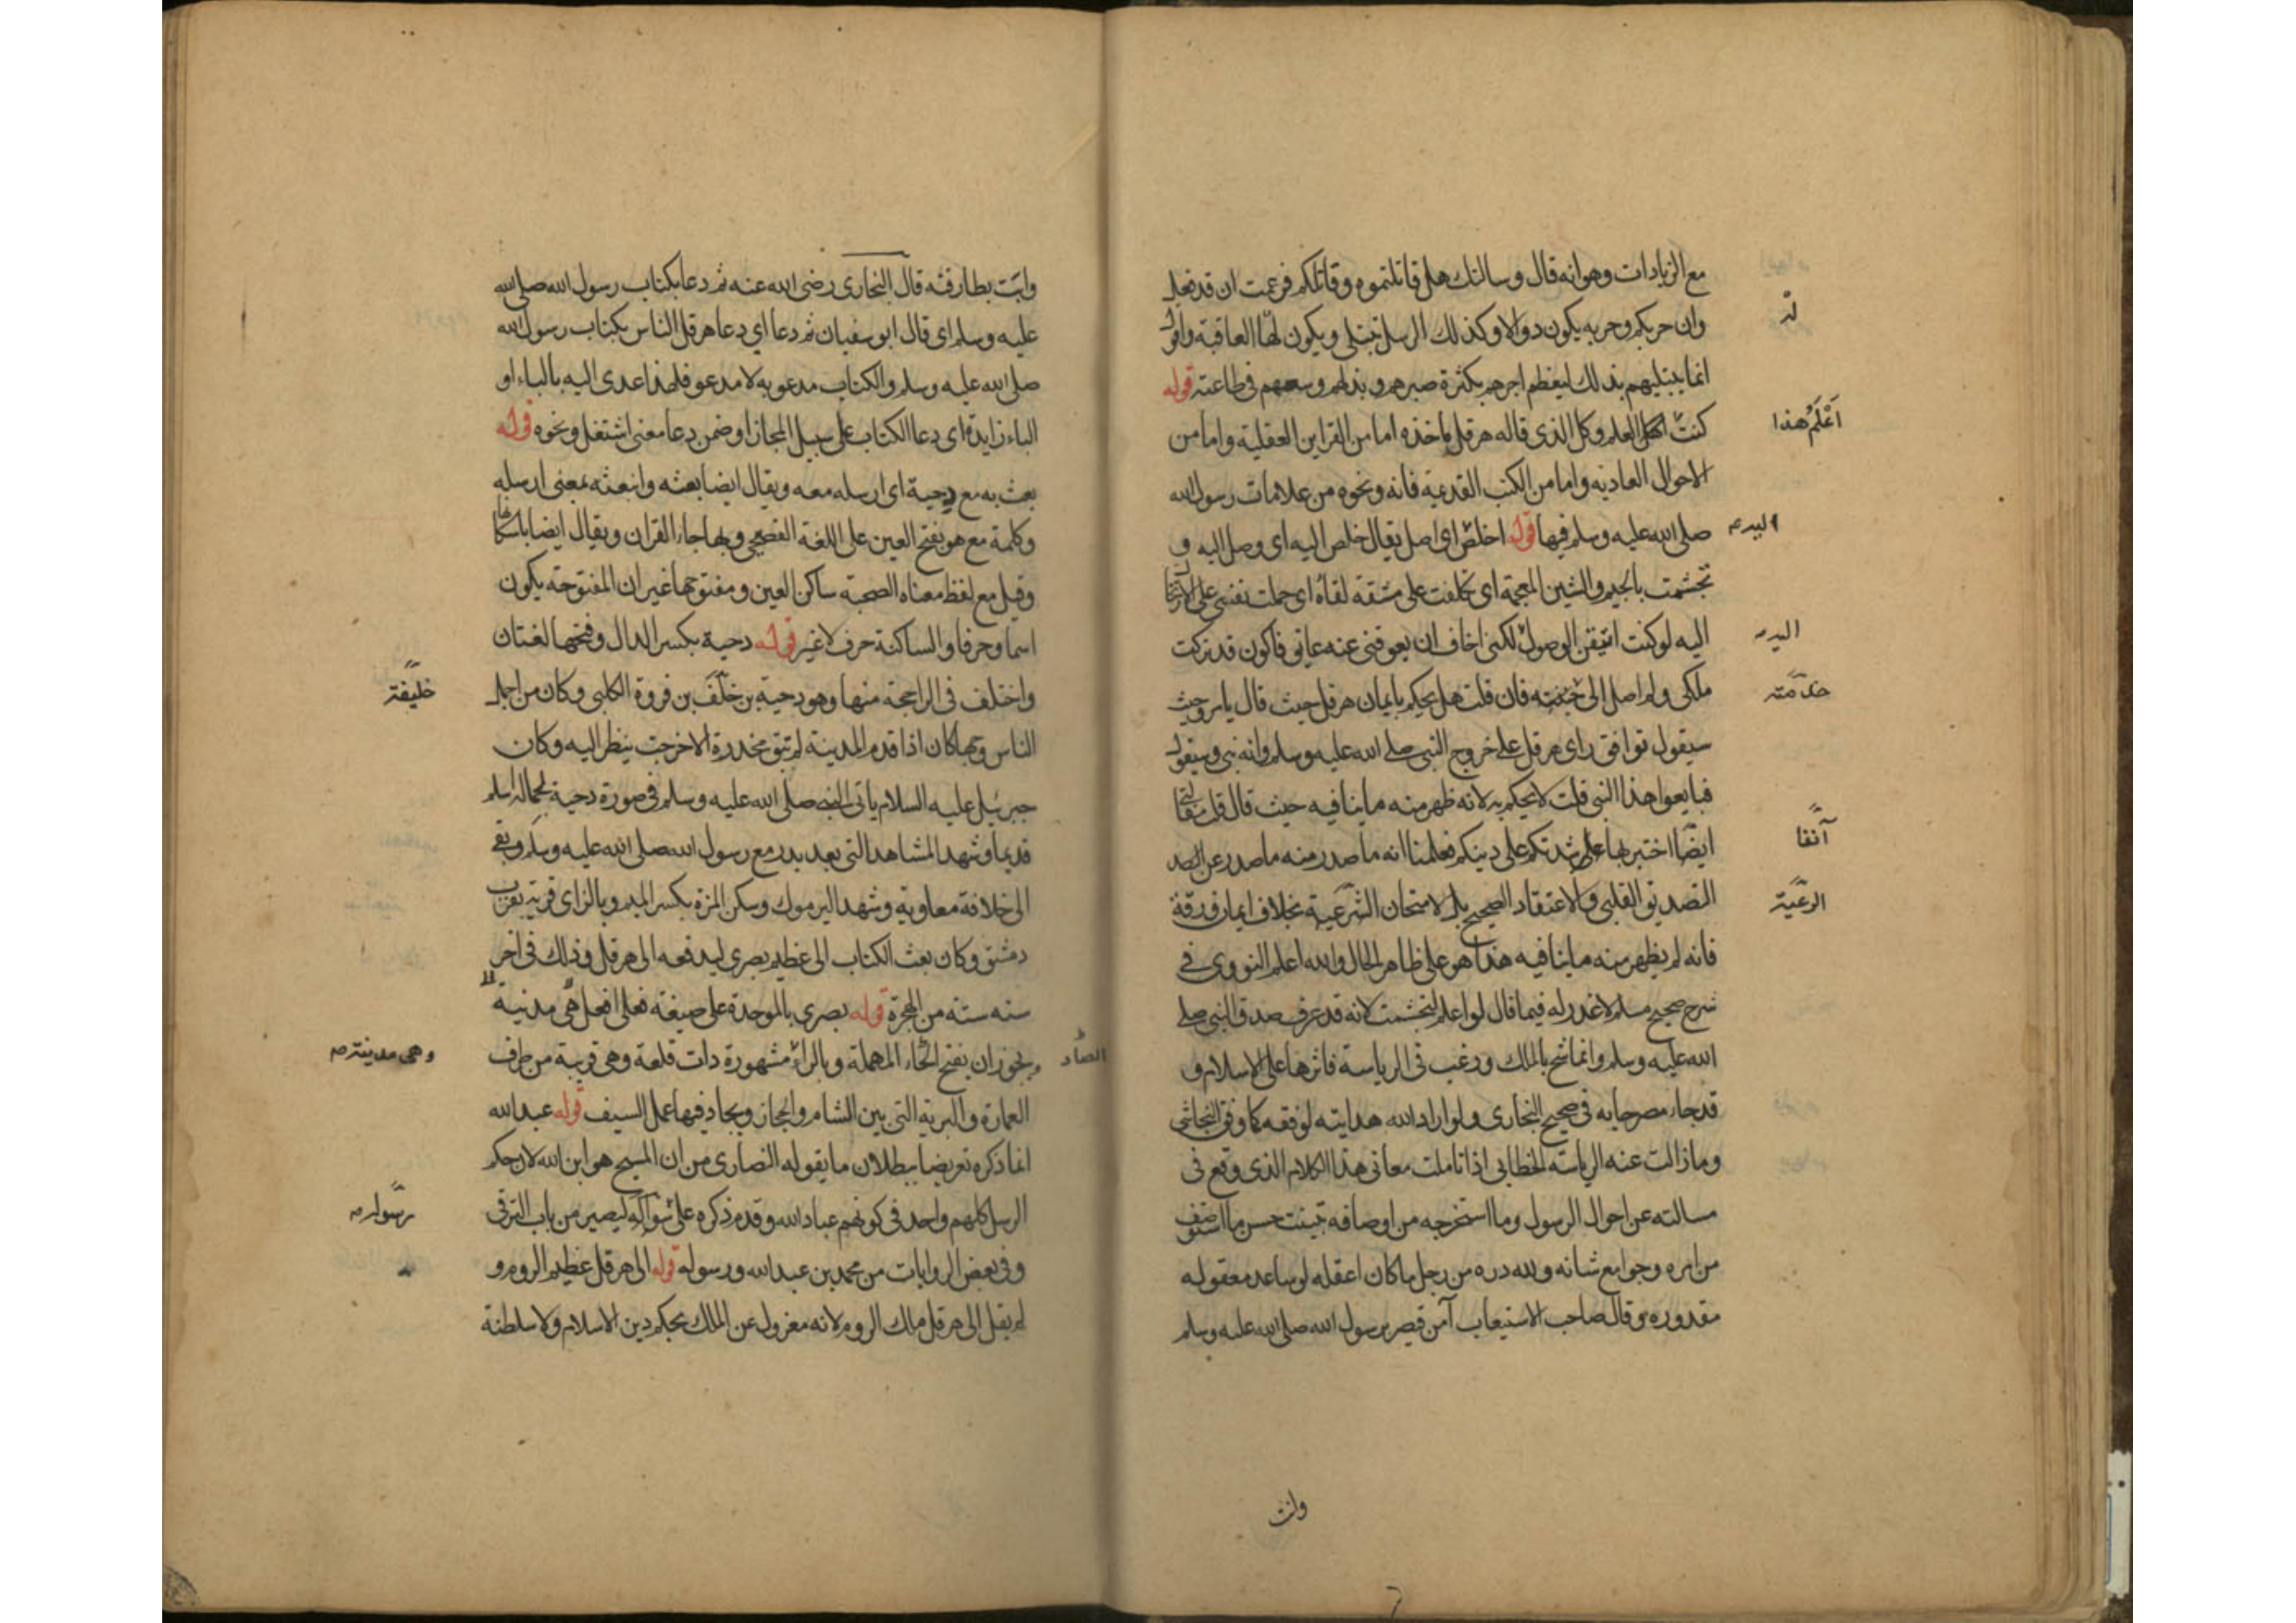 مع الزيادات وهو انه قال وسالتك هل قاتلتموه وقاتلكم فزعمت ان قد فعل
وان حربكم وحربه يكون دولا وكذلك الرسل تبتلى ويكون لها العاقبة واقول
له
انما يبتليهم بذلك ليعظم اجرهم بكثرة صبرهم وبذلهم وسعهم في طاعته قوله
كنت اعلم وكل الذي قاله هرقل ماخذه اما من القراين العقلية واما من
اعلم هذا
الاحوال العادية واما من الكتب القديمة فانه ونحوه من علامات رسول الله
صلى الله عليه وسلم فيها قوله اخلص اى اصل يقال خلص اليه اى وصل اليه و
اليه
تجشمت بالجيم والشين المعجمة اى تكلفت على مشقة لقاه اى حملت نفسى على الارتحال
اليه لو كنت اتيقن الوصول لكنى اخاف ان يعوقنى عنه عائق فاكون قد تركت
اليه
ملكى ولم اصل الى خدمته فان قلت هل يحكم بايمان هرقل حيث قال يا من وحيث
خدمته
سيقول توافق راى هرقل على خروج النبى صلى الله عليه وسلم وانه نبى وسيقول
فبايعوا هذا النبى قلت لا يحكم به لانه ظهر منه ما ينافيه حيث قال قلت مقالتى
ايضا اختبر بها على شدتكم على دينكم فعلمنا انه ما صدر منه ما صدر عن
آنفا
التصديق القلبى والاعتقاد الصحيح بل لامتحان الرعية بخلاف ايمان ورقة
الرعية
فانه لم يظهر منه ما ينافيه هذا هو على ظاهر الحال والله اعلم النووى فى
شرح صحيح مسلم لا عذر له فيما قال لو اعلم لتجشمت لانه قد عرف صدق النبى صلى
الله عليه وسلم وانما شح بالملك ورغب فى الرياسة فاثرها على الاسلام و
قد جاء مصرحا به فى صحيح البخارى ولو اراد الله هدايته لوفقه كما وفق النجاشى
وما زالت عنه الرياسة الخطابى اذا تاملت معانى هذا الكلام الذى وقع فى
مسالته عن احوال الرسول وما استخرجه من اوصافه تبينت حسن ما استوصف
من امره وجوامع شانه ولله دره من رجل ما كان اعقله لو ساعد معقوله
مقدوره وقال صاحب الاستيعاب آمن قيصر برسول الله صلى الله عليه وسلم
وابت
وابت بطارقته قال البخارى رضى الله عنه ثم دعا بكتاب رسول الله صلى الله
عليه وسلم اى قال ابو سفيان ثم دعا اي دعا هرقل الناس بكتاب رسول الله
صلى الله عليه وسلم والكتاب مدعو به لا مدعو فلهذا عدى اليه بالباء او
الباء زايدة اى دعا الكتاب على سبيل المجاز او ضمن دعا معنى اشتغل ونحوه قوله
بعث به مع دحية اى ارسله معه ويقال ايضا بعثه وانبعثه بمعنى ارسله
وكلمة مع هو بفتح العين على اللغة الفصيحى وبها جاء القران ويقال ايضا باسكانها
وقيل مع لفظ معناه الصحبة ساكن العين ومفتوحها غير ان المفتوحة يكون
اسما وحرفا والساكنة حرف لا غير قوله دحية بكسر الدال وفتحها لغتان
واختلف فى الراجحة منها وهو دحية بن خلف بن فروة الكلبى وكان من اجل
خليفة
الناس وجها كان اذا قدم المدينة لم تبق مخدرة الا خرجت ينظر اليه وكان
جبرئيل عليه السلام ياتى النبي صلى الله عليه وسلم فى صورة دحية لجماله اسلم
قديما وشهد المشاهد التى بعد بدر مع رسول الله صلى الله عليه وسلم وبقى
الى خلافة معاوية وشهد اليرموك وسكن المزة بكسر الميم وبالزاى قرية بقرب
دمشق وكان بعث الكتاب الى عظيم بصرى ليدفعه الى هرقل وذلك فى اخر
سنه ستة من الهجرة قوله بصرى بالموحدة على صيغة فعلى افعل هى مدنية
ويجوز ان يفتح الحاء المهملة وبالراء مشهورة ذات قلعة وهى قريبة من طرف
الصاد
وهى مدينة
العمارة والبرية التى بين الشام والحجاز ويجاد فيها عمل السيف قوله عبد الله
انما ذكره تعريضا ببطلان ما يقوله النصارى من ان المسيح هو ابن الله لان حكم
الرسل كلهم واحد فى كونهم عباد الله وقدم ذكره على سواكه ليصير من باب الترقى
رسوله
وفى بعض الروايات من محمد بن عبد الله ورسوله قوله الى هرقل عظيم الروم و
لم يقل الى هرقل ملك الروم لانه معزول عن الملك بحكم دين الاسلام ولا سلطنة